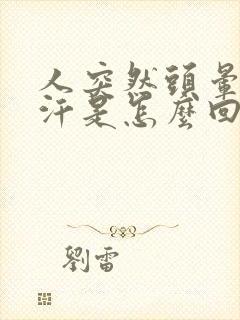 人突然頭暈
汗是怎麼回
劉雷